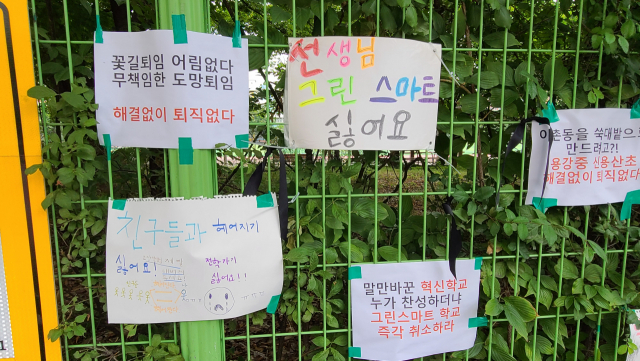 꽃길퇴임 어림없다
무책임한 도망퇴임
해결없이 퇴직없다
선생님
그린 스마트
싫어요
이촌동을 쑥대밭으로
만드려고?!
용강중 신용산초
해결없이 퇴직없다
친구들과 헤어지기
싫어요!
전학가기
싫어요!!
말만바꾼 혁신학교
누가 찬성하더냐
그린스마트 학교
즉각 취소하라